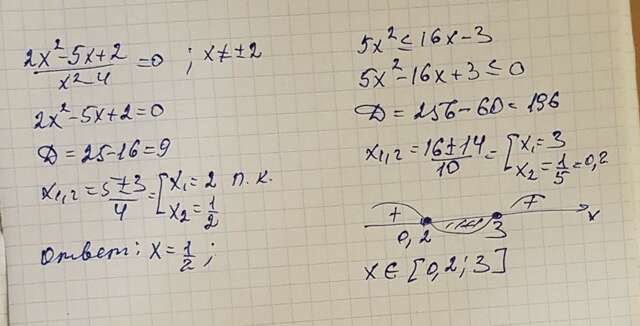 (2x²-5x+2)/(x²-4) = 0 ; x ≠ ±2
2x²-5x+2=0
D = 25-16 = 9
x₁,₂ = (5±3)/4 = [x₁ = 2 п.к.
x₂ = 1/2
Ответ: x = 1/2 ;
5x² ≤ 16x-3
5x²-16x+3 ≤ 0
D = 256-60 = 196
x₁,₂ = (16±14)/10 = [x₁ = 3
x₂ = 1/5 = 0,2
+ +
0,2 3 x
x ∈ [0,2 ; 3]